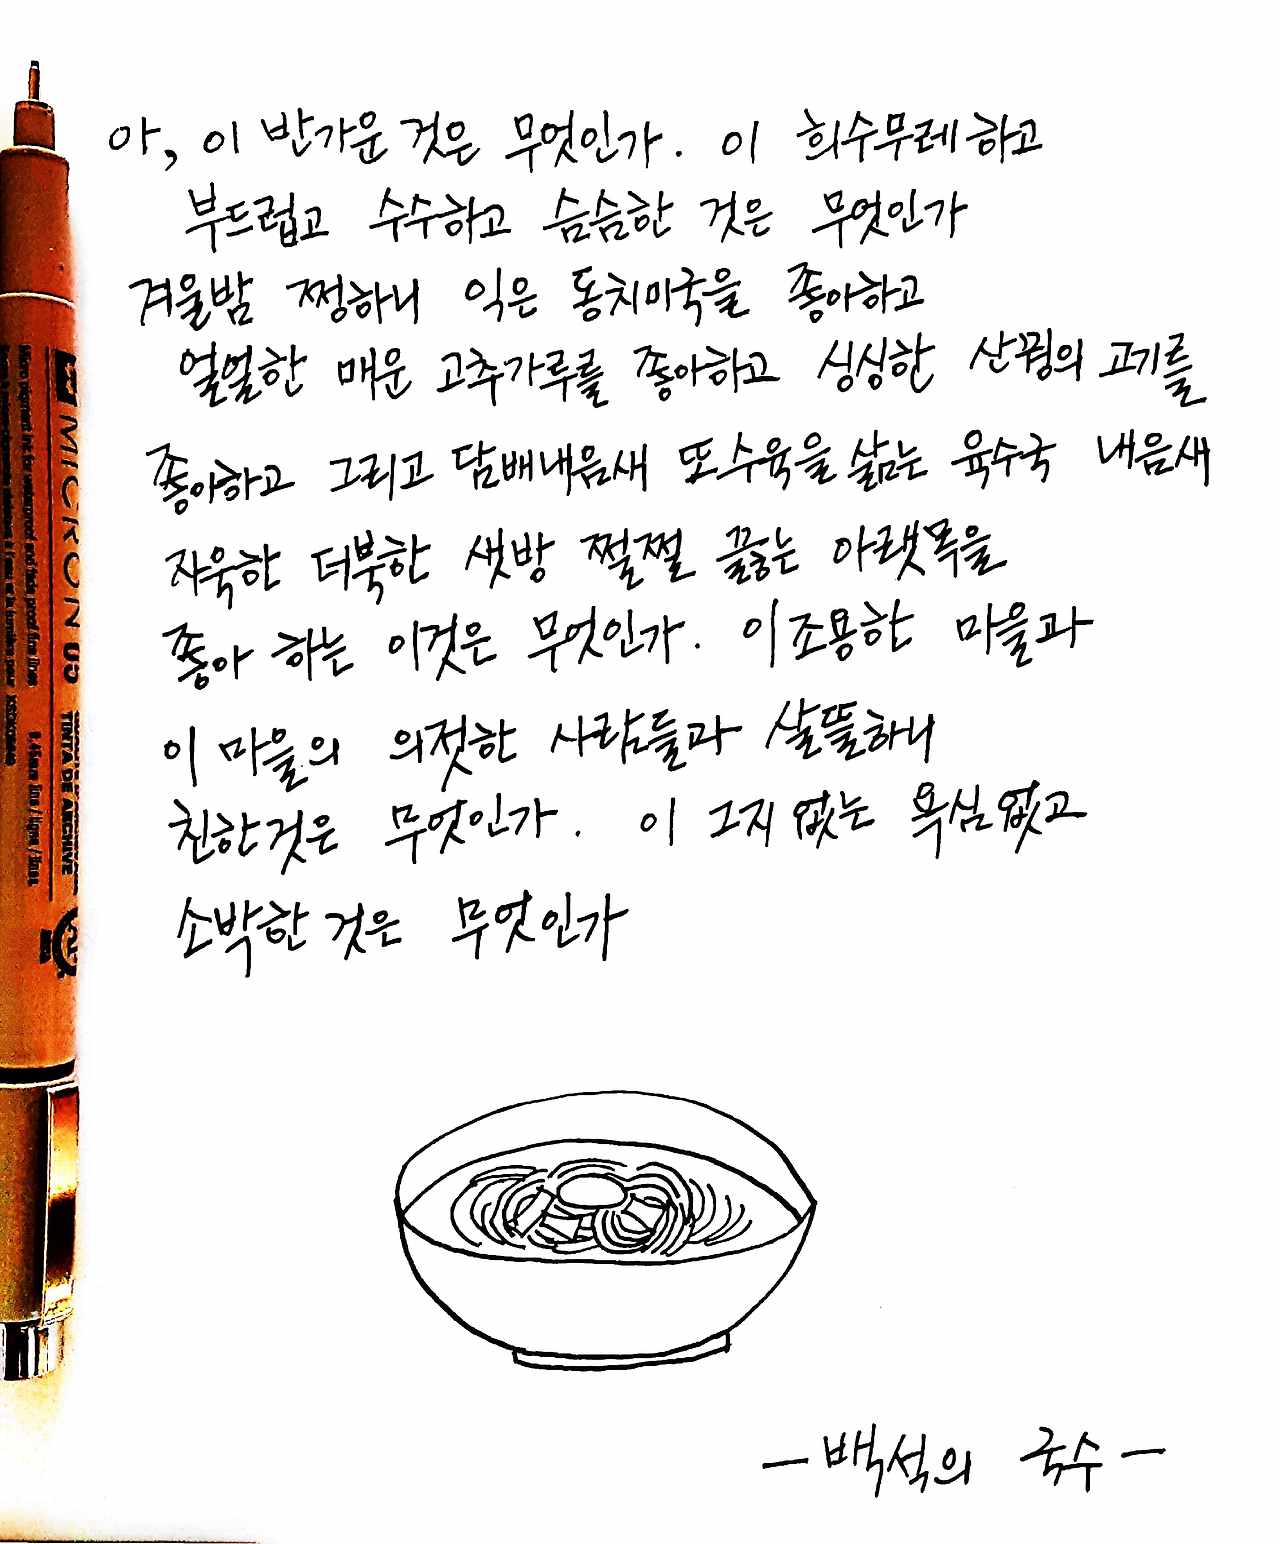 아, 이 반가운 것은 무엇인가. 이 희수무레하고
부드럽고 수수하고 슴슴한 것은 무엇인가
겨울밤 쩡하니 익은 동치미국을 좋아하고
얼얼한 매운 고추가루를 좋아하고 싱싱한 산꿩의 고기를
좋아하고 그리고 담배내음새 또 수육을 삶는 육수국 내음새
자욱한 더북한 샛방 쩔쩔 끓는 아랫목을
좋아 하는 이것은 무엇인가. 이 조용한 마을과
이 마을의 의젓한 사람들과 살뜰하니
친한것은 무엇인가. 이 그지없는 욕심없고
소박한 것은 무엇인가
- 백석의 국수 -
MICRON 05